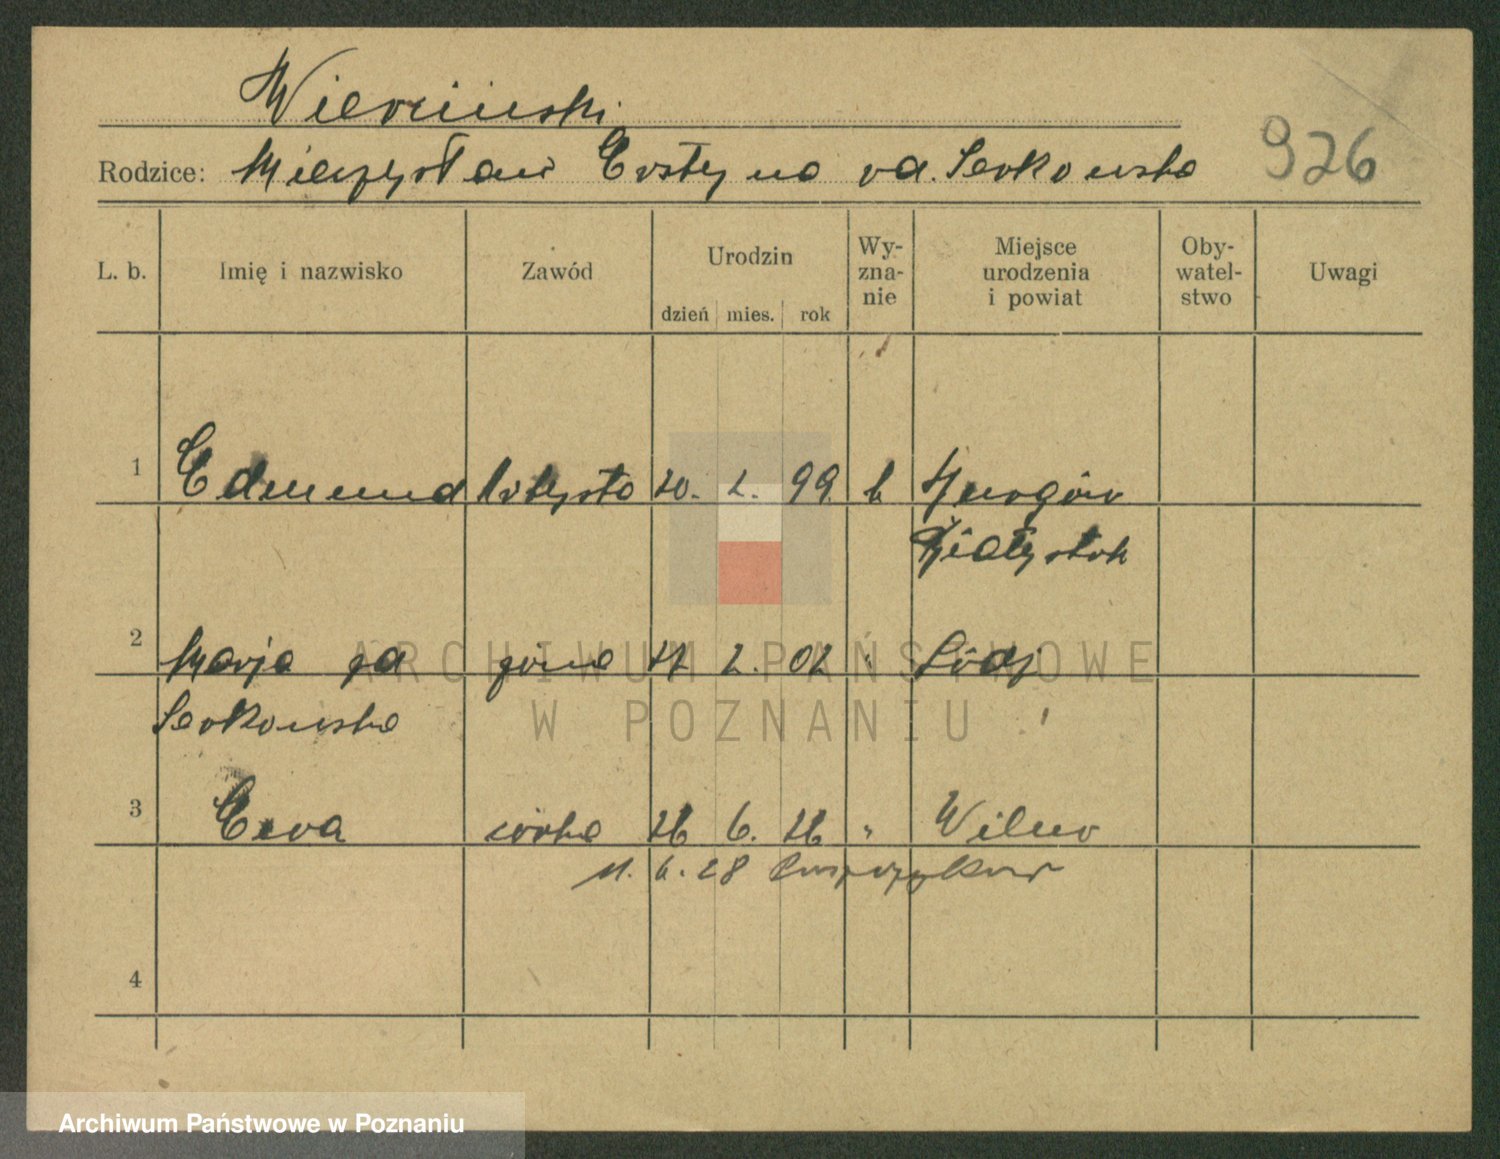 Wierciński
Rodzice: Mieczysław Erstyna od. Serkowska
926
L. b. Imię i nazwisko Zawód Urodzin dzień mies. rok Wy-zna-nie Miejsce urodzenia i powiat Oby-watel-stwo Uwagi
1 Edmund Artysta 20. 2. 99
Białystok
2 Marja zd żona 2. 02 " Łódź
Serkowska
3 Ewa córka 26 6. 26 " Wilno
11. 6. 28
4
ARCHIWUM PAŃSTWOWE
W POZNANIU
Archiwum Państwowe w Poznaniu